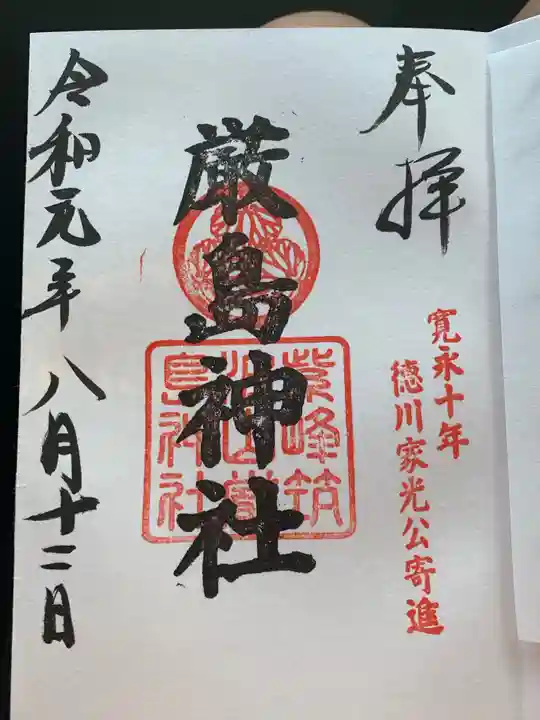 奉拝
寛永十年
徳川家光公寄進
厳島神社
紫峰筑
島神社
令和元年八月十二日